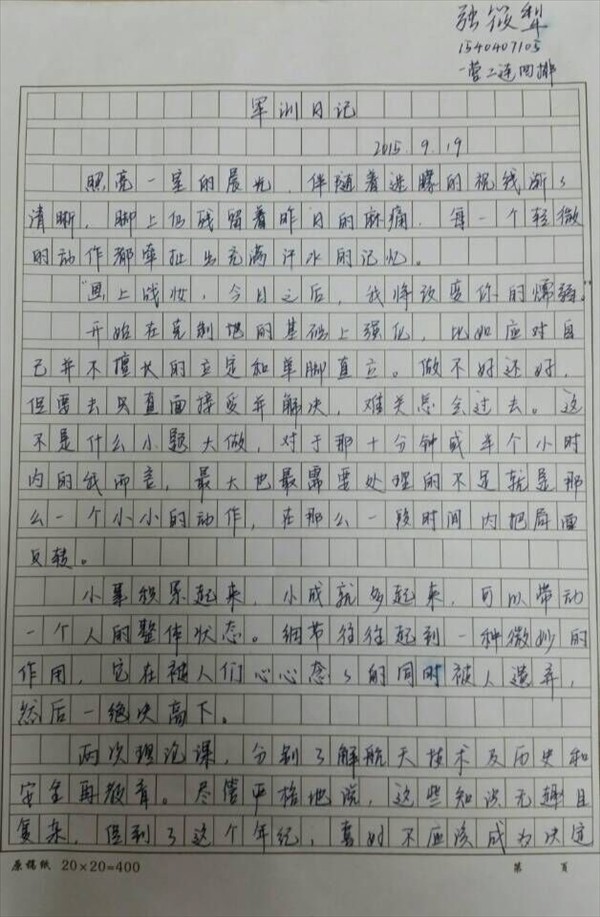 张筱犁
1540407105
一营二连四排
军训日记
2015.9.19
照亮一室的晨光,伴随着迷朦的视线渐渐
清晰,脚上仍残留着昨日的麻痛,每一个轻微
的动作都牵扯出充满汗水的记忆。
"画上战妆,今日之后,我将改变你的懦弱。"
开始在克制地的基础上强化,比如应对自
己并不擅长的立定和单脚直立。做不好还好,
但要去只直面接受并解决,难关总会过去。这
不是什么小题大做,对于那十分钟或半个小时
内的我而言,最大也最需要处理的不足就是那
么一个小小的动作,在那么一段时间内把局面
反转。
小事积累起来,小成就多起来,可以带动
一个人的整体状态。细节往往起到一种微妙的
作用,它在被人们心心念念的同时被人遗弃,
然后一绝决高下。
两次理论课,分别了解航天技术及历史和
安全再教育。尽管严格地说,这些知识无趣且
复杂,但到了这个年纪,喜好不应该成为决定
原稿纸 20×20=400
第 页